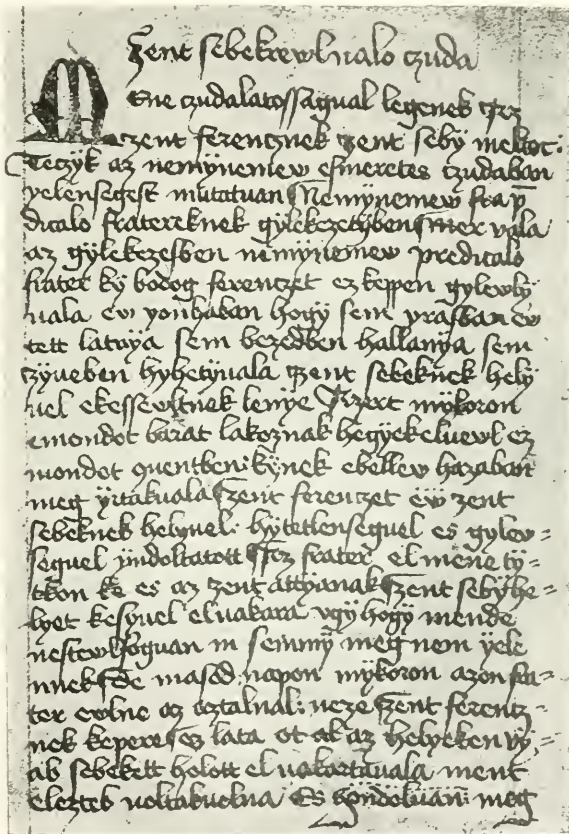 Zent sebekrewl ualo czuda
Mene czudalatossagual legenek ez
zent ferencznek zent seby meltot:
Teczyk az nemynemew esmeretes czudaban
yelensegest mutatuan Nemynemew fra p
dicalo fratereknek gylekezetyben mer vala
az gylekezesben nemynemew predicalo
frater ky bodog ferenczet ez keppen gylewly
uala ew yonhaban hogy sem yrasban ew
tett lataya sem bezedben hallanya sem
zyueben hyhetyuala zent sebeknek hely
uel ekesseoltnek lenye Ezert mykoron
emondot barat lakoznak hegyek eluewl ez
mondot quentben: kynek ebellew hazaban
meg yrtak uala zent ferenczet ew zent
sebeknek helyuel: hytetlenseguel es gylew=
seguel yndoltatott Ez frater el mene ty=
tkon ke es az zent attyanak zent seby he=
lyet kesyuel el uakara vgy hogy mende
nestewl foguan in semmy meg nem yele
nnek De masod napon mykoron azon fra=
ter ewlne az aztalnal: neze zent ferencz=
nek kepere es lata ot al az helyeken vy=
ab sebekett holott el uakarta uala ment
elezteb uoltak uolna Es gondoluan meg